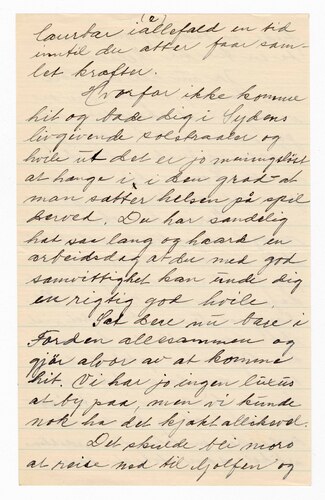 (2)
laurbær iallefald en tid
inntil du atter faar sam-
let kræfter.
Hvorfor ikke komme
hit og bade dig i Sydens
livgivende solstraaler og
hvile ut det er jo meningsløst
at hange i, i den grad at
man sætter helsen på spil
derved. Du har sandelig
hat saa lang og haard en
arbeidsdag at du med god
samvittighet kan unde dig
en rigtig god hvile.
Set dere nu bare i
Forden allesammen og
gjør alvor av at komme
hit. Vi har jo ingen luxus
at by paa, men vi kunde
nok ha det kjækt allikevel.
Det skulde bli moro
at reise ned til Golfen og